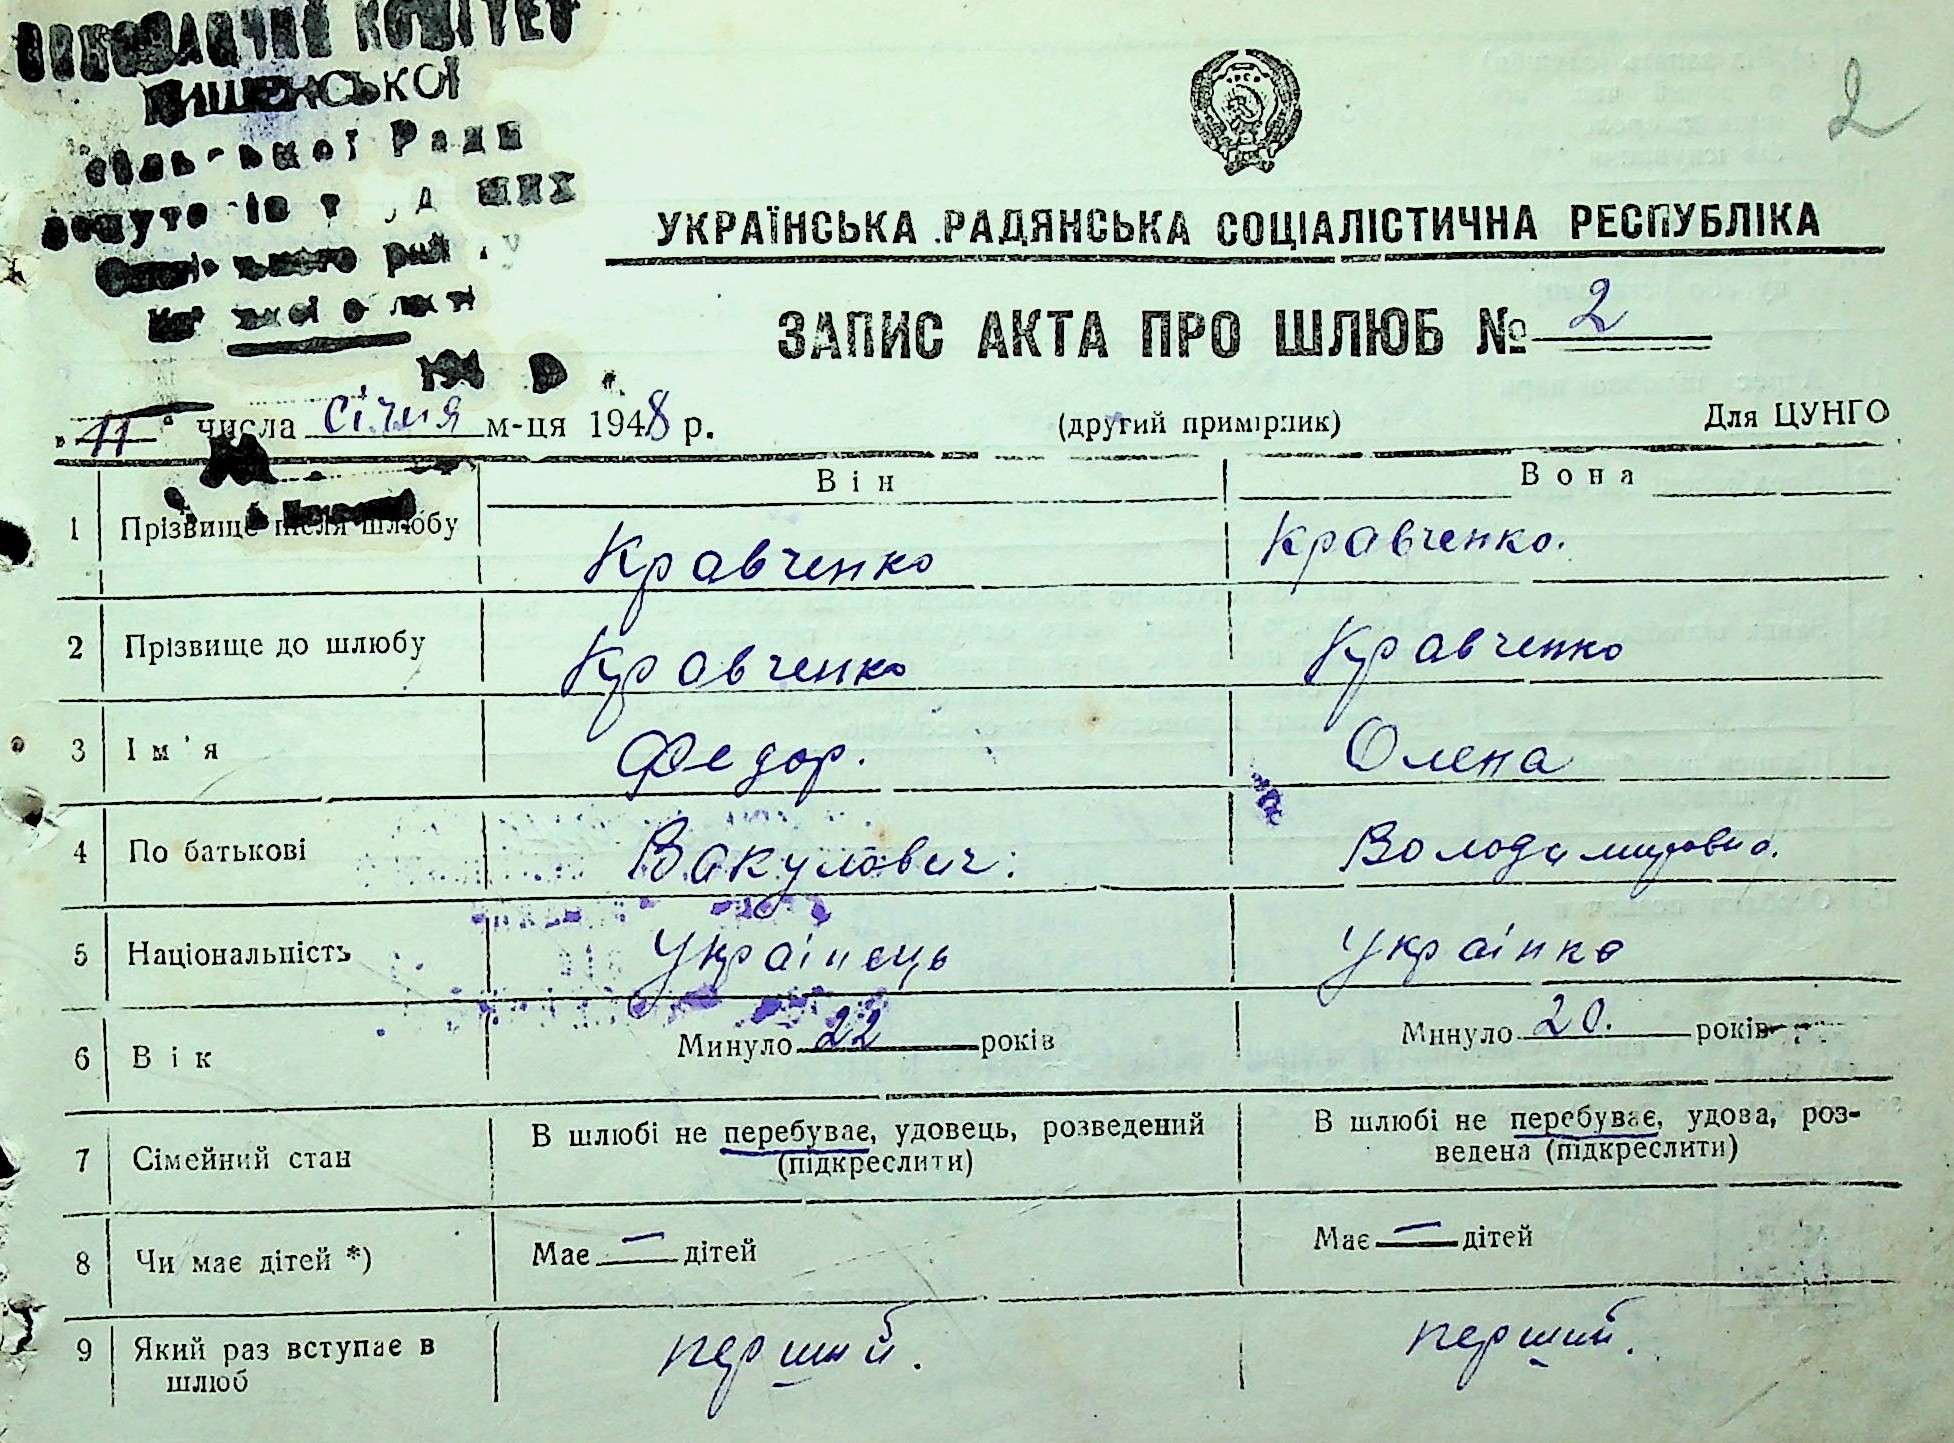 КОМІТЕТ
сільської Ради
2
УКРАЇНСЬКА РАДЯНСЬКА СОЦІАЛІСТИЧНА РЕСПУБЛІКА
ЗАПИС АКТА ПРО ШЛЮБ № 2
"11" числа січня м-ця 1948 р. (другий примірник) Для ЦУНГО
Він Вона
1 Прізвище після шлюбу Кравченко Кравченко.
2 Прізвище до шлюбу Кравченко Кравченко
3 Ім'я Федор. Олена
4 По батькові Вакулович. Володимировна.
5 Національність Українець Українка
6 Вік Минуло 22 років Минуло 20. років
7 Сімейний стан В шлюбі не перебуває, удовець, розведений (підкреслити) В шлюбі не перебуває, удова, роз-
ведена (підкреслити)
8 Чи має дітей *) Має — дітей Має — дітей
9 Який раз вступає в
шлюб перший. перший.